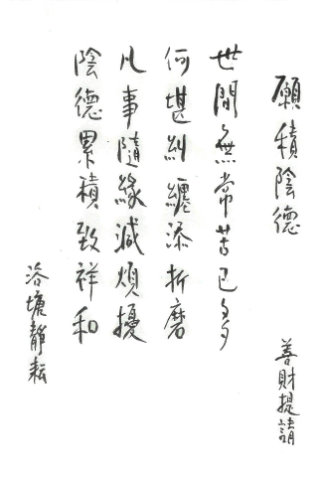 願積陰德
善財提請
世間無常苦已多
何堪糾纏添折磨
凡事隨緣減煩擾
陰德累積致祥和
洛塘靜耘